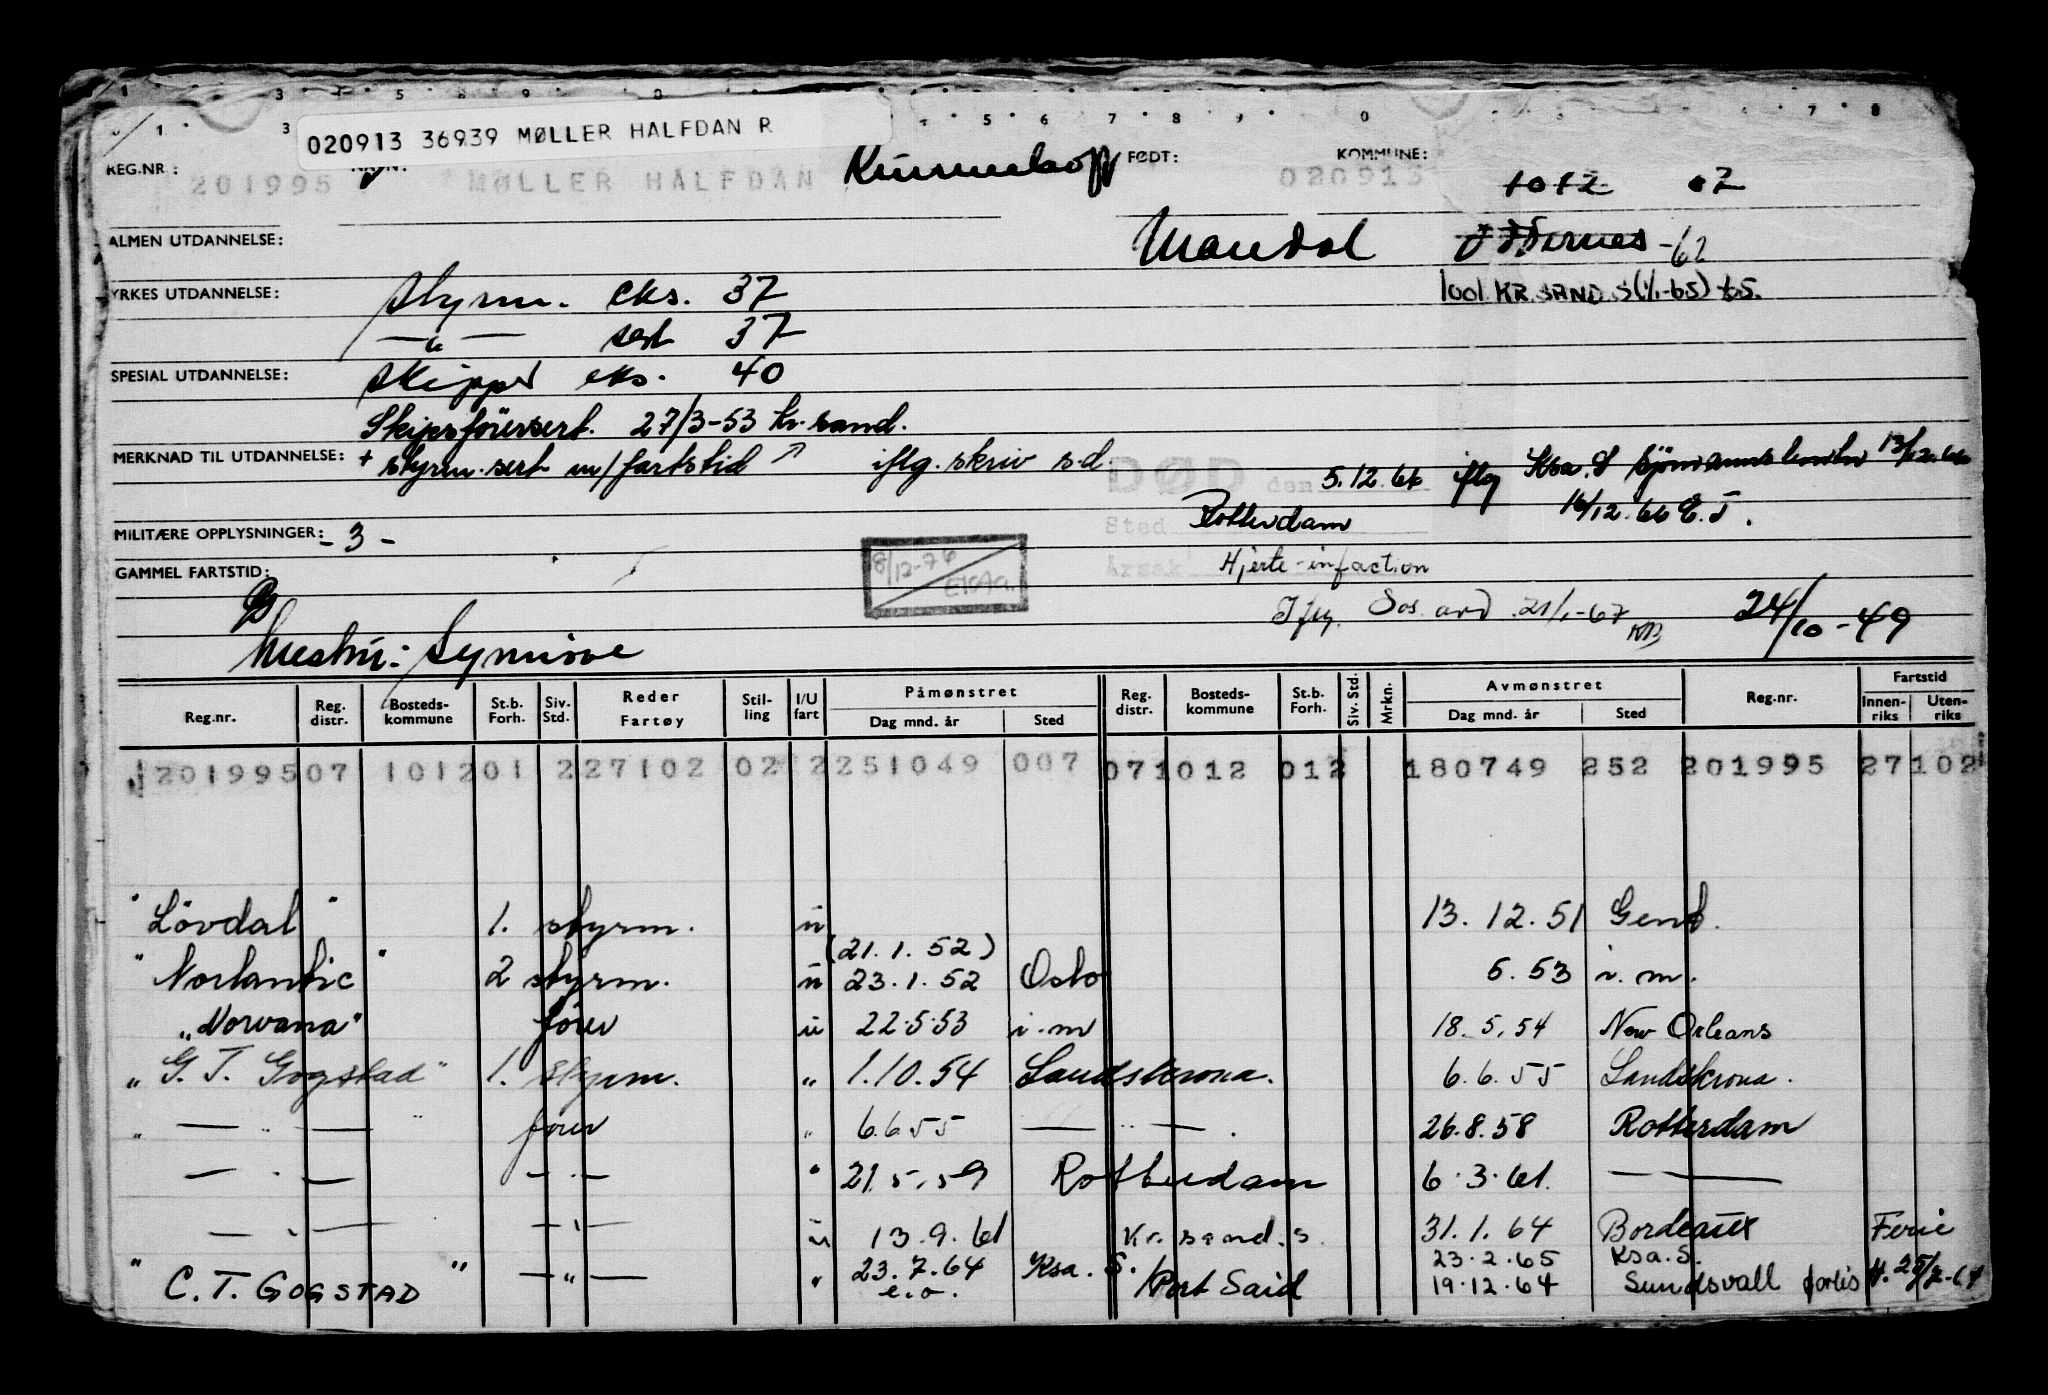 020913 36939 MØLLER HALFDAN R
REG.NR: 201995 MØLLER HALFDAN FØDT: 020913 KOMMUNE: 1012 07
ALMEN UTDANNELSE: Mandal -62
YRKES UTDANNELSE: styrm. eks. 37 1001 KR.SAND.S (1/1-65) 65.
— " — sert 37
SPESIAL UTDANNELSE: skipper eks. 40
Skipsförersert. 27/3-53 Kr.sand.
MERKNAD TIL UTDANNELSE: + styrm.sert m/fartstid iflg. skriv s.d.
DØD den 5.12.66 iflg Ksa. S sjömannskontor 13/12.66
Sted Rotterdam 16/12.66 E.J.
MILITÆRE OPPLYSNINGER: - 3 -
Årsak Hjerte-infaction
GAMMEL FARTSTID: 8/12-76
Iflg. Sos. avd. 21/1-67 KB 24/10-49
hustru: Synnöve
Reg.nr. Reg. distr. Bosteds-kommune St.b. Forh. Siv. Std. Reder Fartøy Stil-ling I/U fart Påmønstret Dag mnd. år Sted Reg. distr. Bosteds-kommune St.b. Forh. Siv. Std. Mrkn. Avmønstret Dag mnd. år Sted Reg.nr. Fartstid Innen-riks Uten-riks
201995 07 1012 01 2 27102 02 2 251049 007 07 1012 012 180749 252 201995 27 102
"Lövdal" 1. styrm. u 13.12.51 Gent.
(21.1.52)
"Norlantic" 2 styrm. u 23.1.52 Oslo 5.53 i.m.
"Norvana" förer u 22.5.53 i.m 18.5.54 New Orleans
"G. T. Gogstad" 1. styrm. " 1.10.54 Landskrona. 6.6.55 Landskrona.
" — " — " förer " 6.6.55 — " — . 26.8.58 Rotterdam
— . — — . — " 21.5.59 Rotterdam 6.3.61. ——
— " — — " — u 13.9.61 Kr.sand.S. 31.1.64 Bordeaux Ferie
23.7.64 Ksa. S. 23.2.65 Ksa.S.
"C. T. GOGSTAD" — " — " e.o. Port Said 19.12.64 Sundsvall